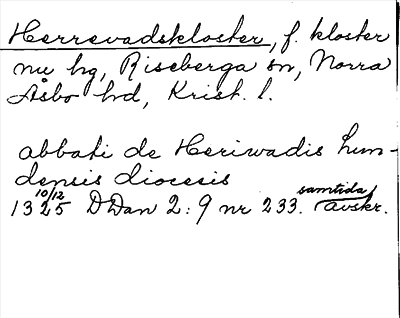 Herrevadskloster, f. kloster
nu hg, Riseberga sn, Norra
Åsbo hd, Krist. l.
abbati de Heriwadis lun-
densis diocesis
10/12 1325 DDan 2:9 nr 233. samtida avskr.